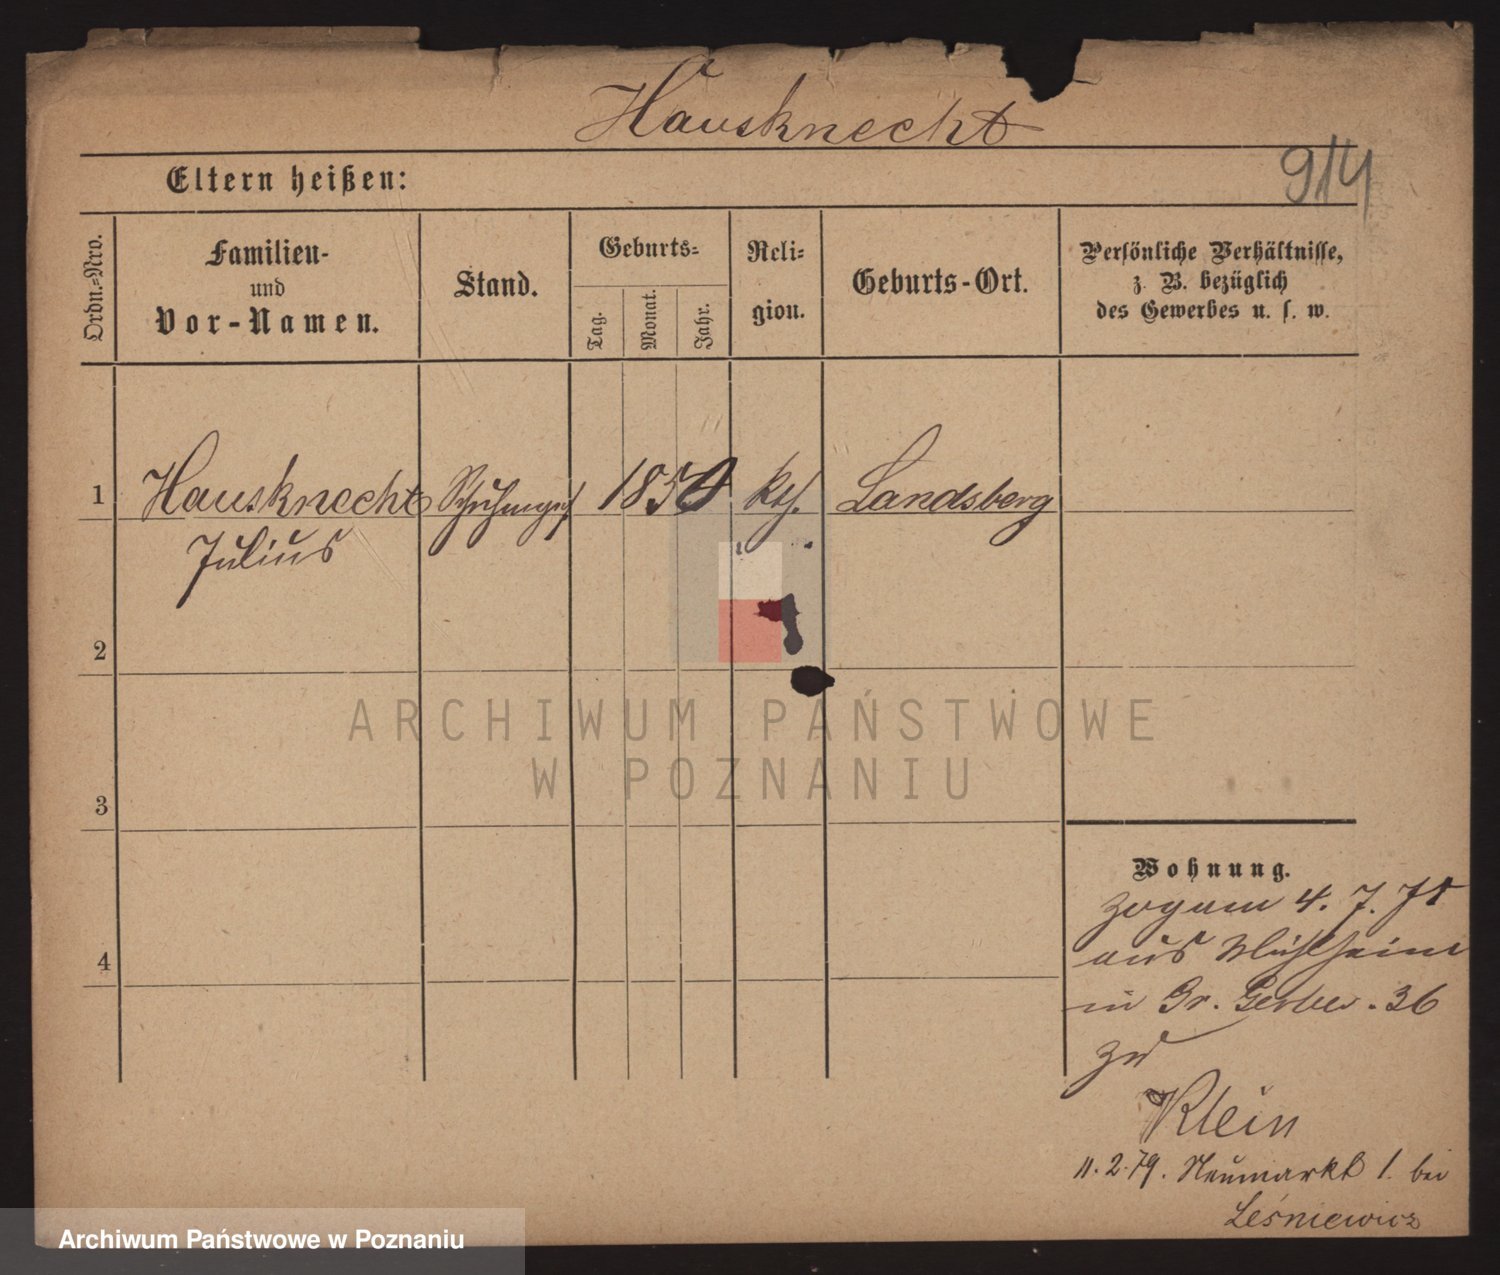 Hausknecht
914
Eltern heißen:
Ordn.-Nro.
Familien-
und
Vor-Namen.
Stand.
Geburts-
Tag.
Monat.
Jahr.
Reli-
gion.
Geburts-Ort.
Persönliche Verhältnisse,
z. B. bezüglich
des Gewerbes u. s. w.
1
Hausknecht
Julius
Schuhmges
1850
kth.
Landsberg
2
3
4
Wohnung.
zogam 4. 7.
aus Mühlheim
in Gr. Gerber. 36
zu
Klein
11. 2. 79. Neumarkt 1. bei
Leśniewicz
ARCHIWUM PAŃSTWOWE
W POZNANIU
Archiwum Państwowe w Poznaniu